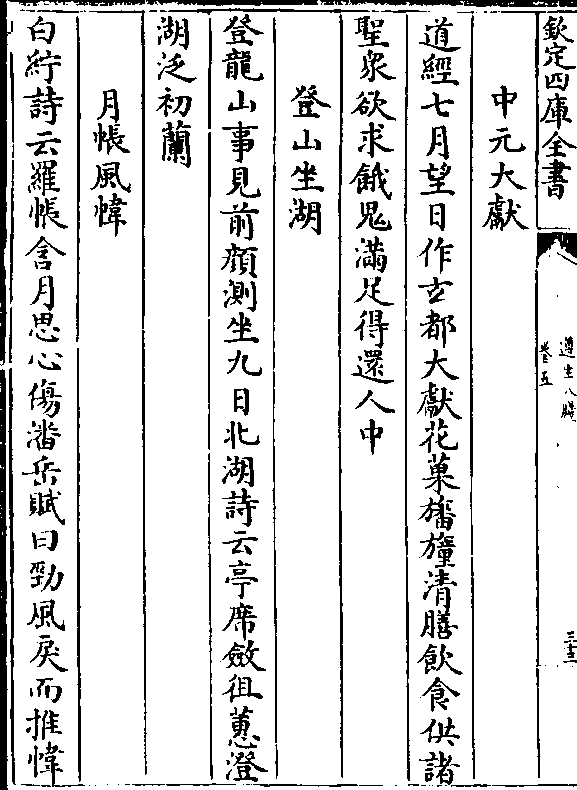 欽定四庫全書
遵生八牋
卷五
中元大獻
道經七月望日作玄都大獻花菓旛幢清膳飲食供諸
聖衆欲求餓鬼滿足得還人中
登山坐湖
登龍山事見前顔測坐九日北湖詩云亭席斂徂蕙澄
湖泛初蘭
月帳風幃
白紵詩云羅帳含月思心傷潘岳賦曰勁風戾而推幃